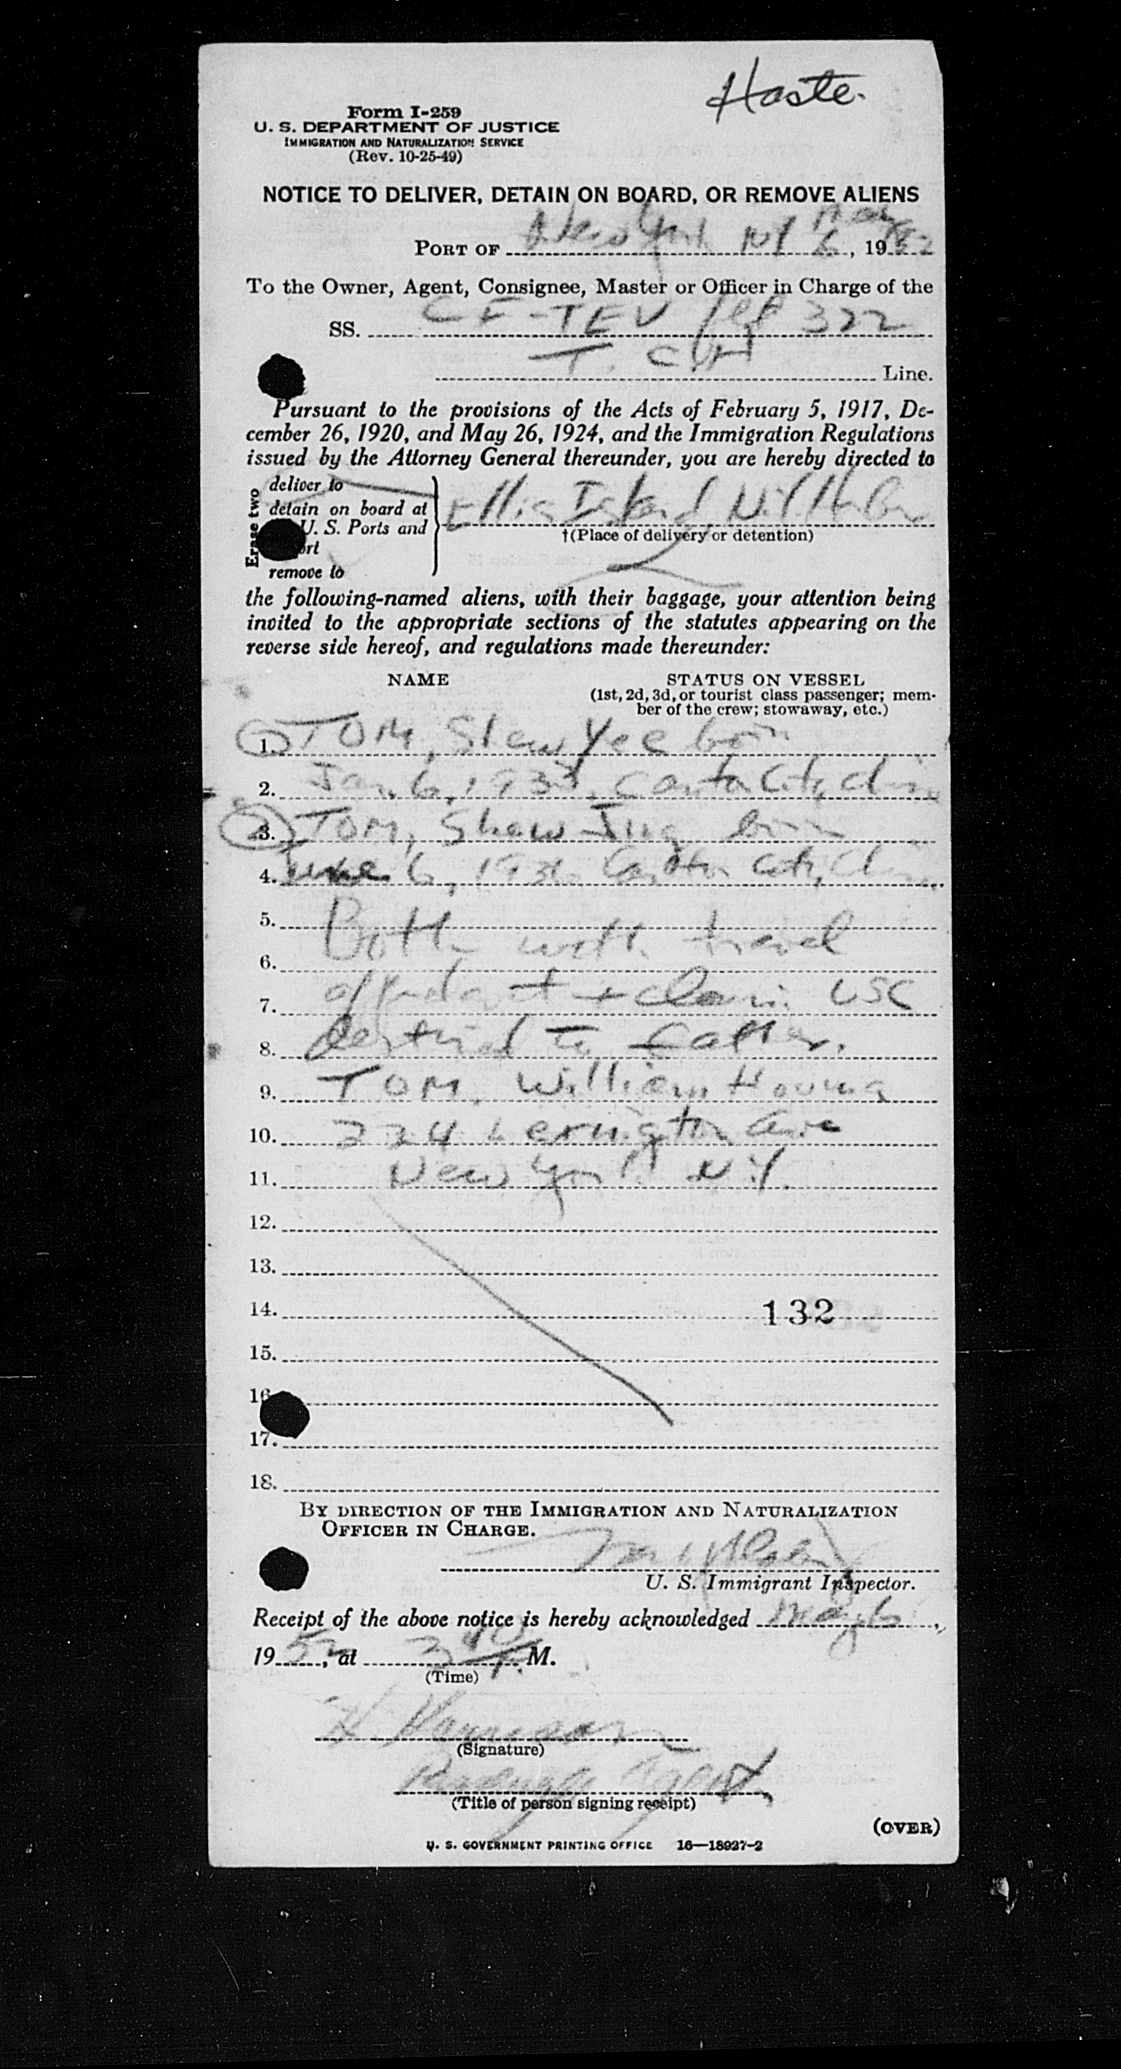 Haste.
Form I-259
U. S. DEPARTMENT OF JUSTICE
IMMIGRATION AND NATURALIZATION SERVICE
(Rev. 10-25-49)
NOTICE TO DELIVER, DETAIN ON BOARD, OR REMOVE ALIENS
PORT OF New York NY May 6, 1952
To the Owner, Agent, Consignee, Master or Officer in Charge of the
SS. CF-TEV 322
T. C.A
Line.
Pursuant to the provisions of the Acts of February 5, 1917, De-
cember 26, 1920, and May 26, 1924, and the Immigration Regulations
issued by the Attorney General thereunder, you are hereby directed to
Erase two
deliver to
detain on board at
U. S. Ports and
remove to
Ellis Island
†(Place of delivery or detention)
the following-named aliens, with their baggage, your attention being
invited to the appropriate sections of the statutes appearing on the
reverse side hereof, and regulations made thereunder:
NAME
STATUS ON VESSEL
(1st, 2d, 3d, or tourist class passenger; mem-
ber of the crew; stowaway, etc.)
1. TOM, Shew Yee born
2. Jan. 6, Canton City, China
2 3. TOM, Shew Jing born
4. June 6, Canton City, China
5. Both with travel
6.
7. affidavit + claim USC
8. destined to father.
9. TOM, William Houng
10. 224 Lexington Ave
11. New York N.Y.
12.
13.
14. 132
15.
16.
17.
18.
BY DIRECTION OF THE IMMIGRATION AND NATURALIZATION
OFFICER IN CHARGE.
U. S. Immigrant Inspector.
Receipt of the above notice is hereby acknowledged May 6,
1952, at 3 40 P. M.
(Time)
H Harrison
(Signature)
Agent
(Title of person signing receipt)
(OVER)
U. S. GOVERNMENT PRINTING OFFICE 16—18927-2